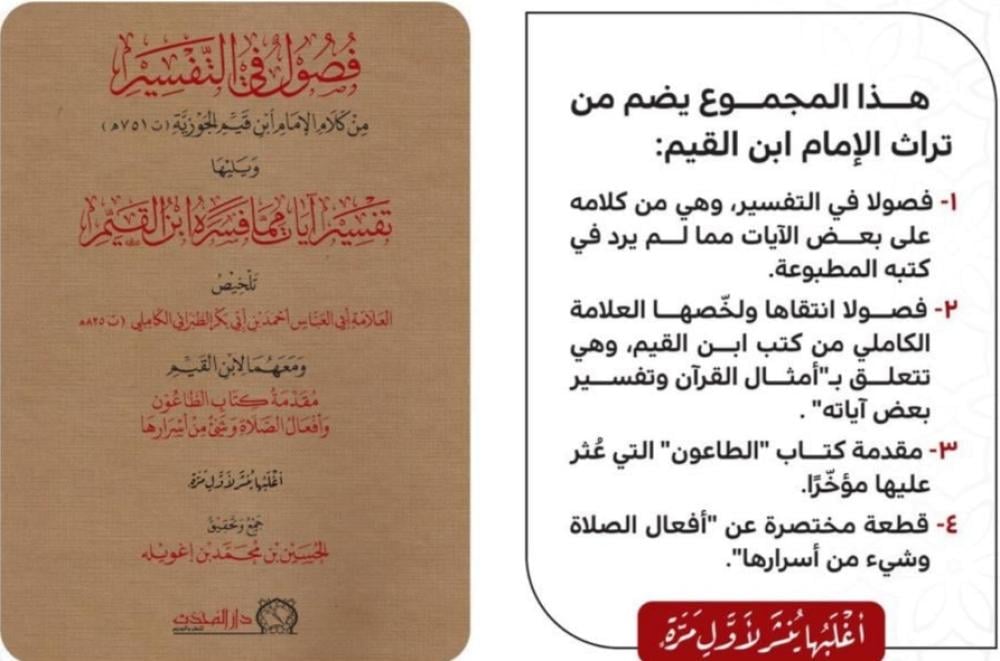 فُصُولٌ فِي التَّفْسِيرِ
مِنْ كَلَامِ الإِمَامِ ابْنِ قَيِّمِ الجَوْزِيَّةِ (ت ٧٥١ هـ)
وَيَلِيْهَا
تَفْسِيرُ آيَاتٍ مِمَّا فَسَّرَهُ ابْنُ القَيِّمِ
تَلْخِيْصُ
العَلَّامَةِ أَبِي العَبَّاسِ أَحْمَدَ بْنِ أَبِي بَكْرٍ الطَّبَرَانِي الكَامِلِي (ت ٨٣٥هـ)
وَمَعَهُمَا لِابْنِ القَيِّمِ
مُقَدِّمَةُ كِتَابِ الطَّاعُوْنِ
وَأَفْعَالُ الصَّلَاةِ وَشَيْءٌ مِنْ أَسْرَارِهَا
أَغْلَبُهَا يُنْشَرُ لِأَوَّلِ مَرَّةٍ
جَمْعُ وَتَحْقِيقُ
الحُسَيْنِ بْنِ مُحَمَّدِ بْنِ إغويله
دار المحدث
للنشر والتوزيع
هـذا المجمـوع يضم من
تراث الإمام ابن القيم:
١- فصولا في التفسير، وهي من كلامه
على بعـض الآيات مما لـم يرد في
كتبه المطبوعة.
٢- فصـولا انتقاها ولخّصهـا العلامة
الكاملي من كتب ابـن القيم، وهي
تتعلـق بـ"أمثـال القرآن وتفسـير
بعض آياته" .
٣- مقدمة كتـاب "الطاعون" التي عُثر
عليها مؤخّرًا.
٤- قطعة مختصرة عن "أفعال الصلاة
وشيء من أسرارها".
أَغْلَبُهَا يُنْشَرُ لِأَوَّلِ مَرَّةٍ